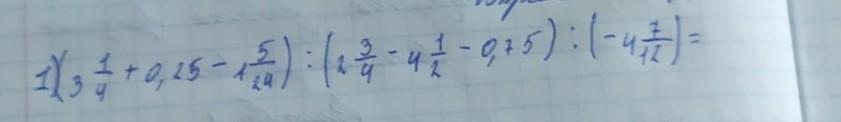 1)(3 1/4 + 0,25 - 1 5/24) : (2 3/4 - 4 1/2 - 0,75) : (-4 7/12) =